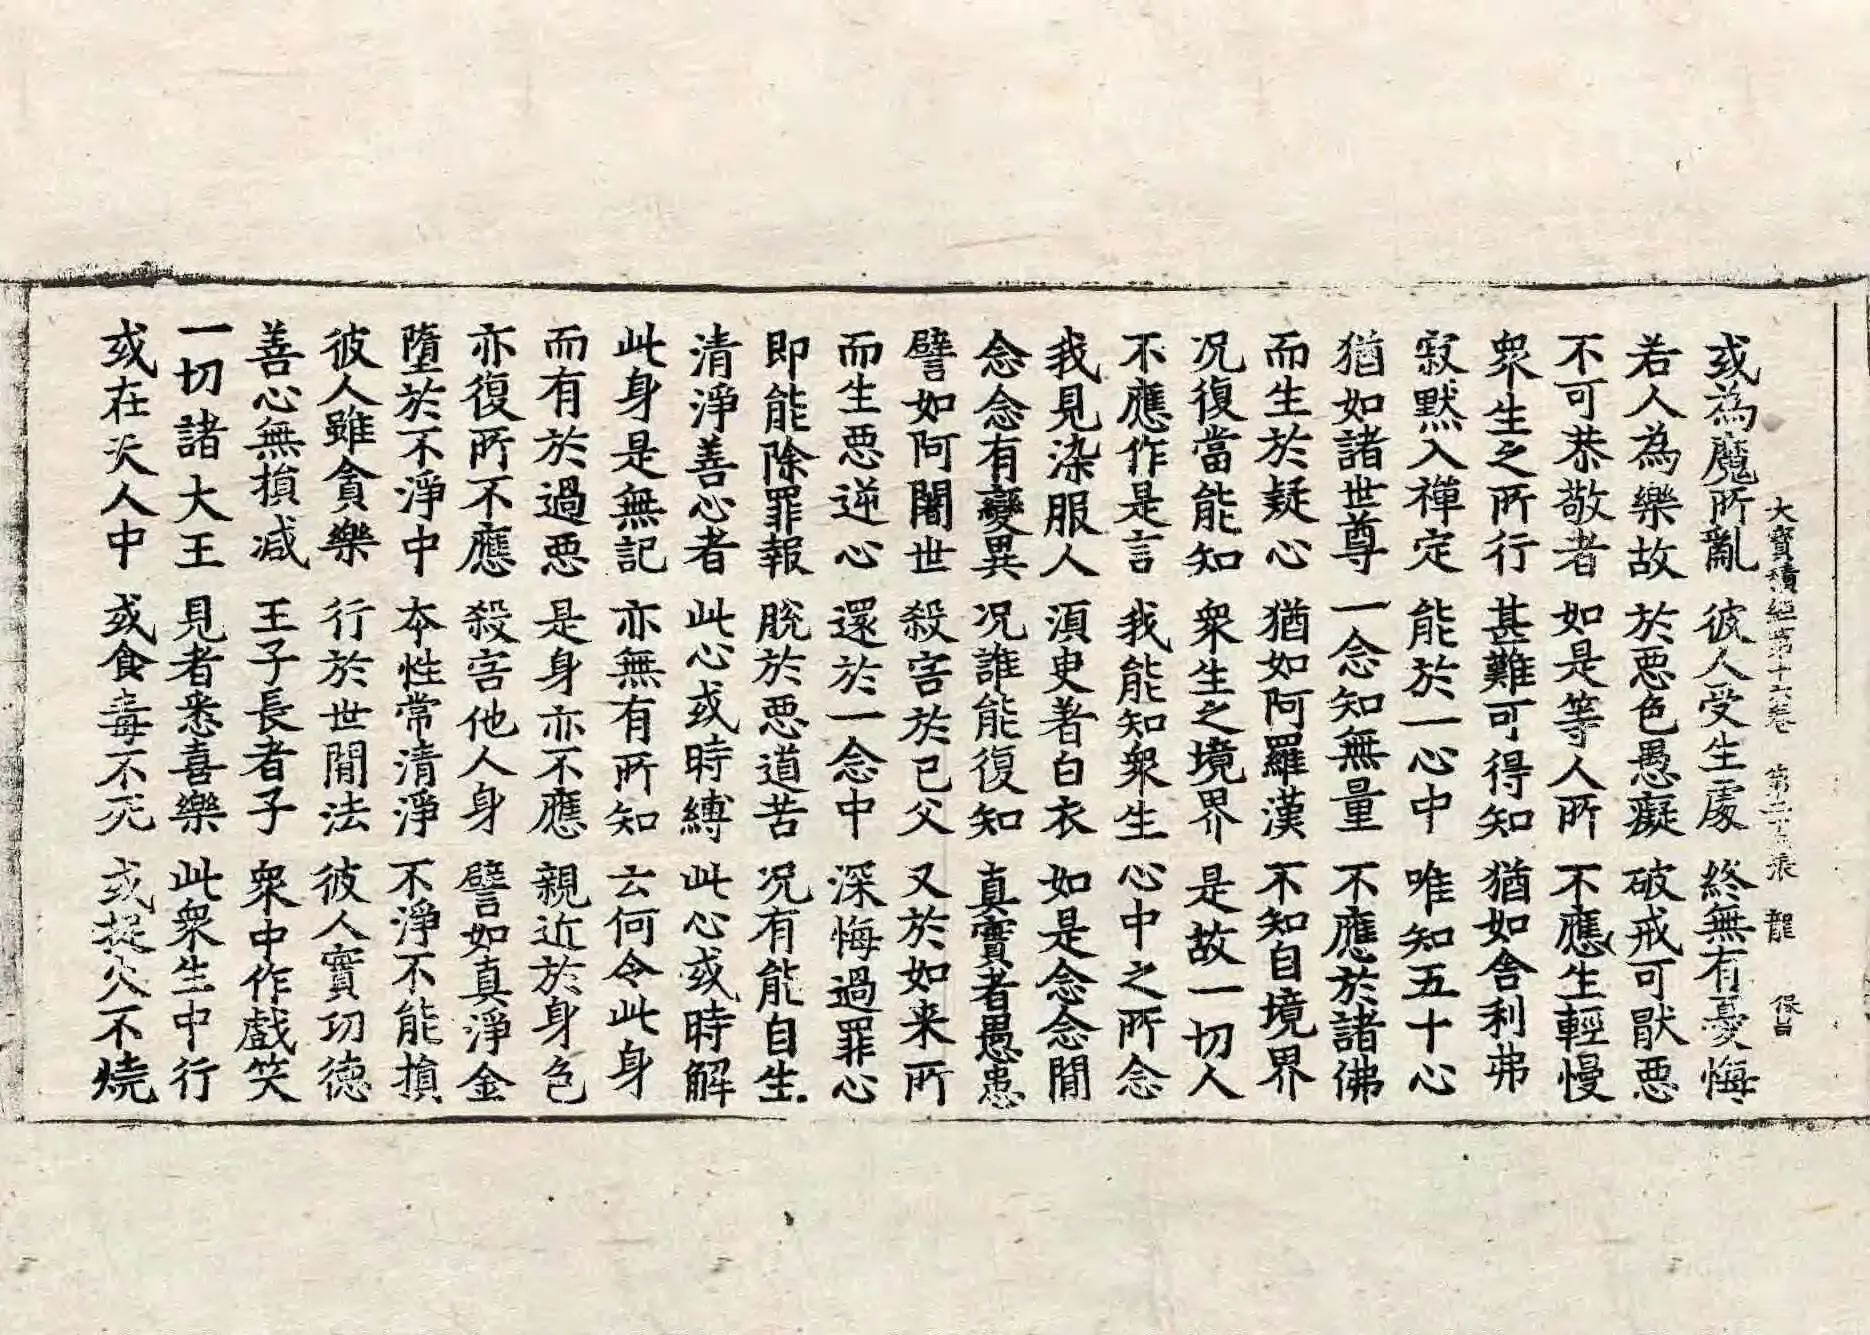 大寶積經第十六卷 第二十張 龍 保昌
或為魔所亂 彼人受生處 終無有憂悔
若人為樂故 於惡色愚癡 破戒可猒惡
不可恭敬者 如是等人所 不應生輕慢
衆生之所行 甚難可得知 猶如舍利弗
寂默入禪定 能於一心中 唯知五十心
猶如諸世尊 一念知無量 不應於諸佛
而生於疑心 猶如阿羅漢 不知自境界
况復當能知 衆生之境界 是故一切人
不應作是言 我能知衆生 心中之所念
我見染服人 湏史著白衣 如是念念閒
念念有變異 况誰能復知 真實者愚恚
譬如阿闍世 殺害於已父 又於如来所
而生惡逆心 還於一念中 深悔過罪心
即能除罪報 脫於惡道苦 况有能自生
清淨善心者 此心或時縛 此心或時解
此身是無記 亦無有所知 云何令此身
而有於過惡 是身亦不應 親近於身色
亦復所不應 殺害他人身 譬如真淨金
墮於不淨中 本性常清淨 不淨不能損
彼人雖貪樂 行於世閒法 彼人實功德
善心無損減 王子長者子 衆中作戲笑
一切諸大王 見者悉喜樂 此衆生中行
或在天人中 或食毒不死 或捉火不燒